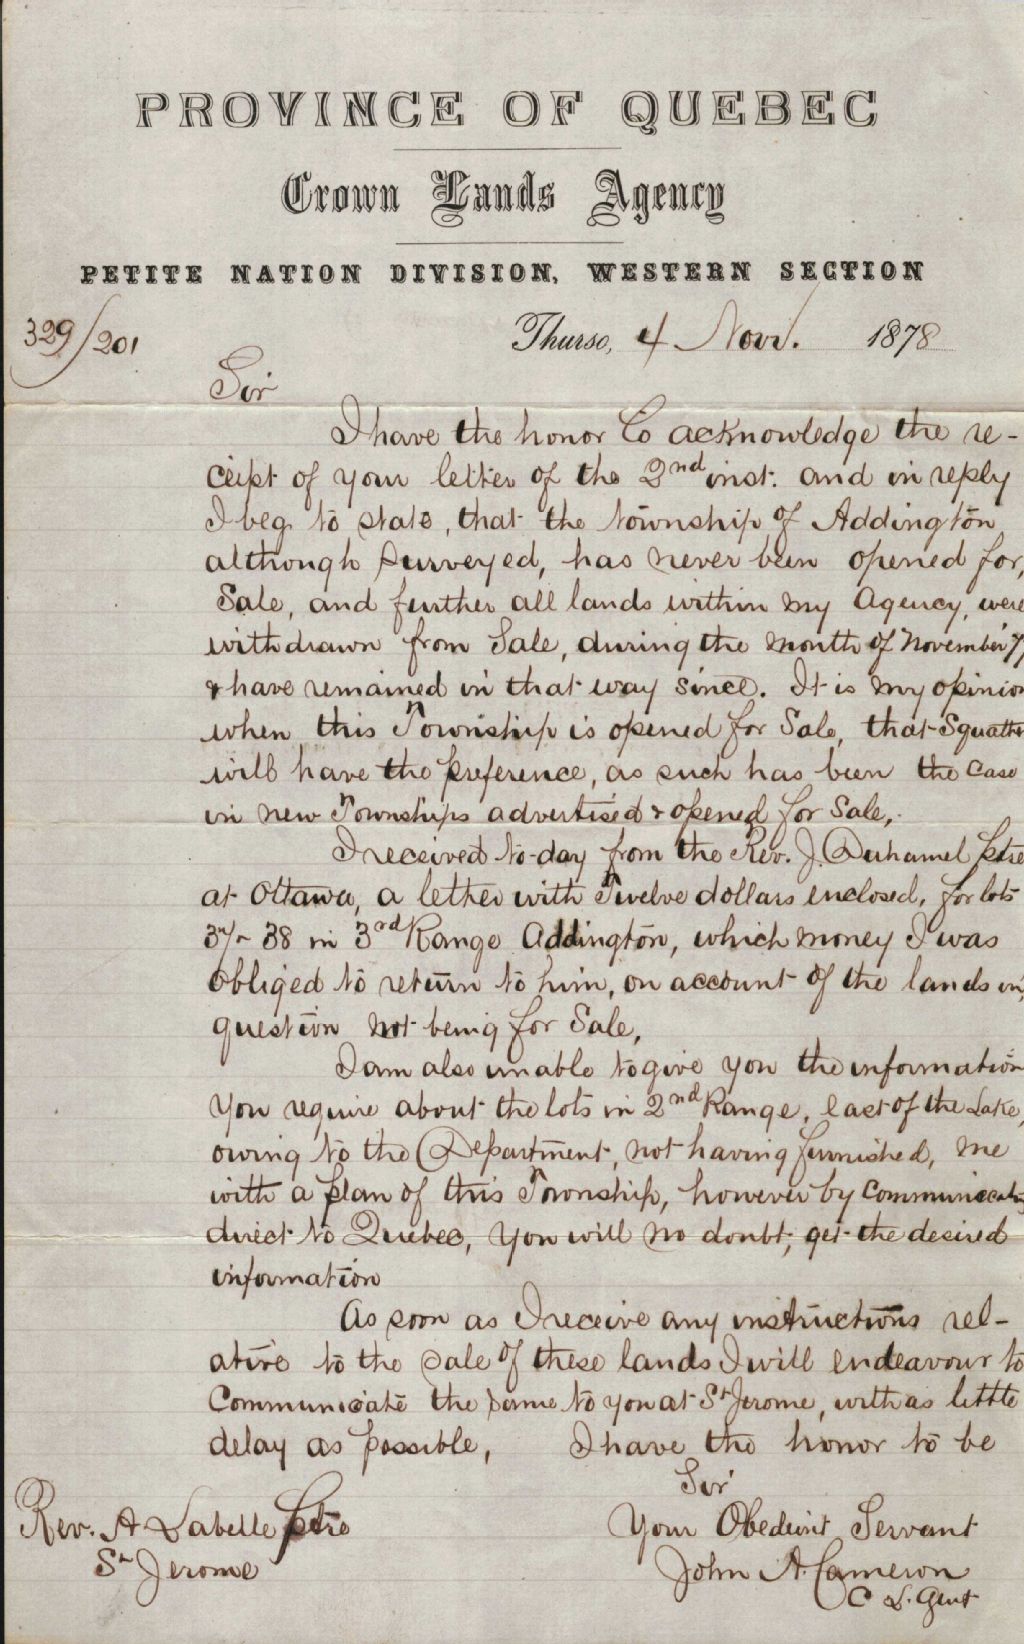 PROVINCE OF QUEBEC
Crown Lands Agency
PETITE NATION DIVISION, WESTERN SECTION
329/201
Thurso, 4 Novr. 1878
Sir
I have the honor to acknowledge the re-
ceipt of your letter of the 2nd inst. and in reply
I beg to state, that the township of Addington
although surveyed, has never been opened for,
Sale, and further all lands within my Agency, were
withdrawn from Sale, during the month of November 7
& have remained in that way since. It is my opinion
when this Township is opened for Sale, that Squatters
will have the preference, as such has been the case
in new Townships advertised & opened for Sale,
I received to-day from the Rev. J. Duhamel Ptre
at Ottawa, a letter with Twelve dollars enclosed, for lots
37 & 38 in 3rd Range Addington, which money I was
obliged to return to him, on account of the lands in
question not being for Sale,
I am also unable to give you the information
you require about the lots in 2nd Range, East of the Lake,
owing to the Department, not having furnished, me
with a plan of this Township, however by communicating
direct to Quebec, you will no doubt, get the desired
information
As soon as I receive any instructions rel-
ative to the sale of these lands I will endeavour to
communicate the same to you at St Jerome, with as little
delay as possible, I have the honor to be
Sir
Rev. A Labelle Ptre Your Obedient Servant
St Jerome John A. Cameron
C L. Agent